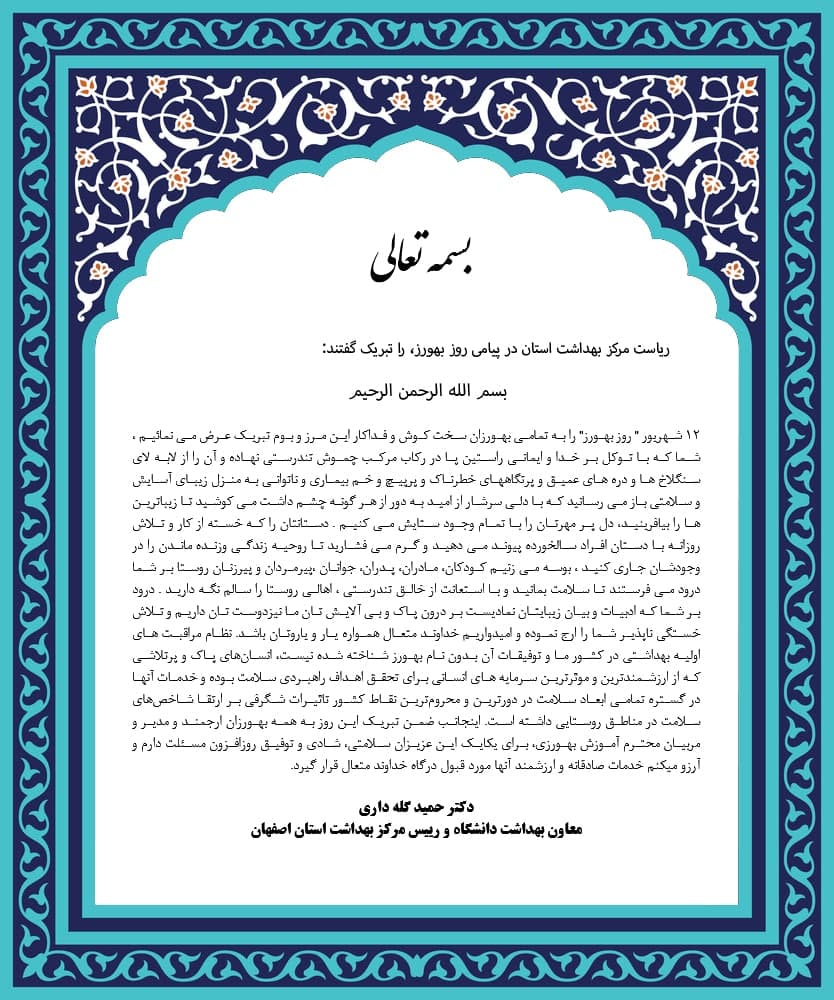 بسمه تعالی
ریاست مرکز بهداشت استان در پیامی روز بهورز، را تبریک گفتند:
بسم الله الرحمن الرحیم
۱۲ شهریور " روز بهورز" را به تمامی بهورزان سخت کوش و فداکار این مرز و بوم تبریک عرض می نمائیم ،
شما که با توکل بر خدا و ایمانی راستین پا در رکاب مرکب چموش تندرستی نهاده و آن را از لابه لای
سنگلاخ ها و دره های عمیق و پرتگاههای خطرناک و پرپیچ و خم بیماری و ناتوانی به منزل زیبای آسایش
و سلامتی باز می رسانید که با دلی سرشار از امید به دور از هر گونه چشم داشت می کوشید تا زیباترین
ها را بیافرینید، دل پر مهرتان را با تمام وجود ستایش می کنیم . دستانتان را که خسته از کار و تلاش
روزانه با دستان افراد سالخورده پیوند می دهید و گرم می فشارید تا روحیه زندگی وزنده ماندن را در
وجودشان جاری کنید ، بوسه می زنیم کودکان، مادران، پدران، جوانان ،پیرمردان و پیرزنان روستا بر شما
درود می فرستند تا سلامت بمانید و با استعانت از خالق تندرستی ، اهالی روستا را سالم نگه دارید . درود
بر شما که ادبیات و بیان زیبایتان نمادیست بر درون پاک و بی آلایش تان ما نیزدوست تان داریم و تلاش
خستگی ناپذیر شما را ارج نموده و امیدواریم خداوند متعال همواره یار و یاروتان باشد. نظام مراقبت های
اولیه بهداشتی در کشور ما و توفیقات آن بدون نام بهورز شناخته شده نیست، انسان‌های پاک و پرتلاشی
که از ارزشمندترین و موثرترین سرمایه های انسانی برای تحقق اهداف راهبردی سلامت بوده و خدمات آنها
در گستره تمامی ابعاد سلامت در دورترین و محروم‌ترین نقاط کشور تاثیرات شگرفی بر ارتقا شاخص‌های
سلامت در مناطق روستایی داشته است. اینجانب ضمن تبریک این روز به همه بهورزان ارجمند و مدیر و
مربیان محترم آموزش بهورزی، برای یکایک این عزیزان سلامتی، شادی و توفیق روزافزون مسئلت دارم و
آرزو میکنم خدمات صادقانه و ارزشمند آنها مورد قبول درگاه خداوند متعال قرار گیرد.
دکتر حمید گله داری
معاون بهداشت دانشگاه و رییس مرکز بهداشت استان اصفهان